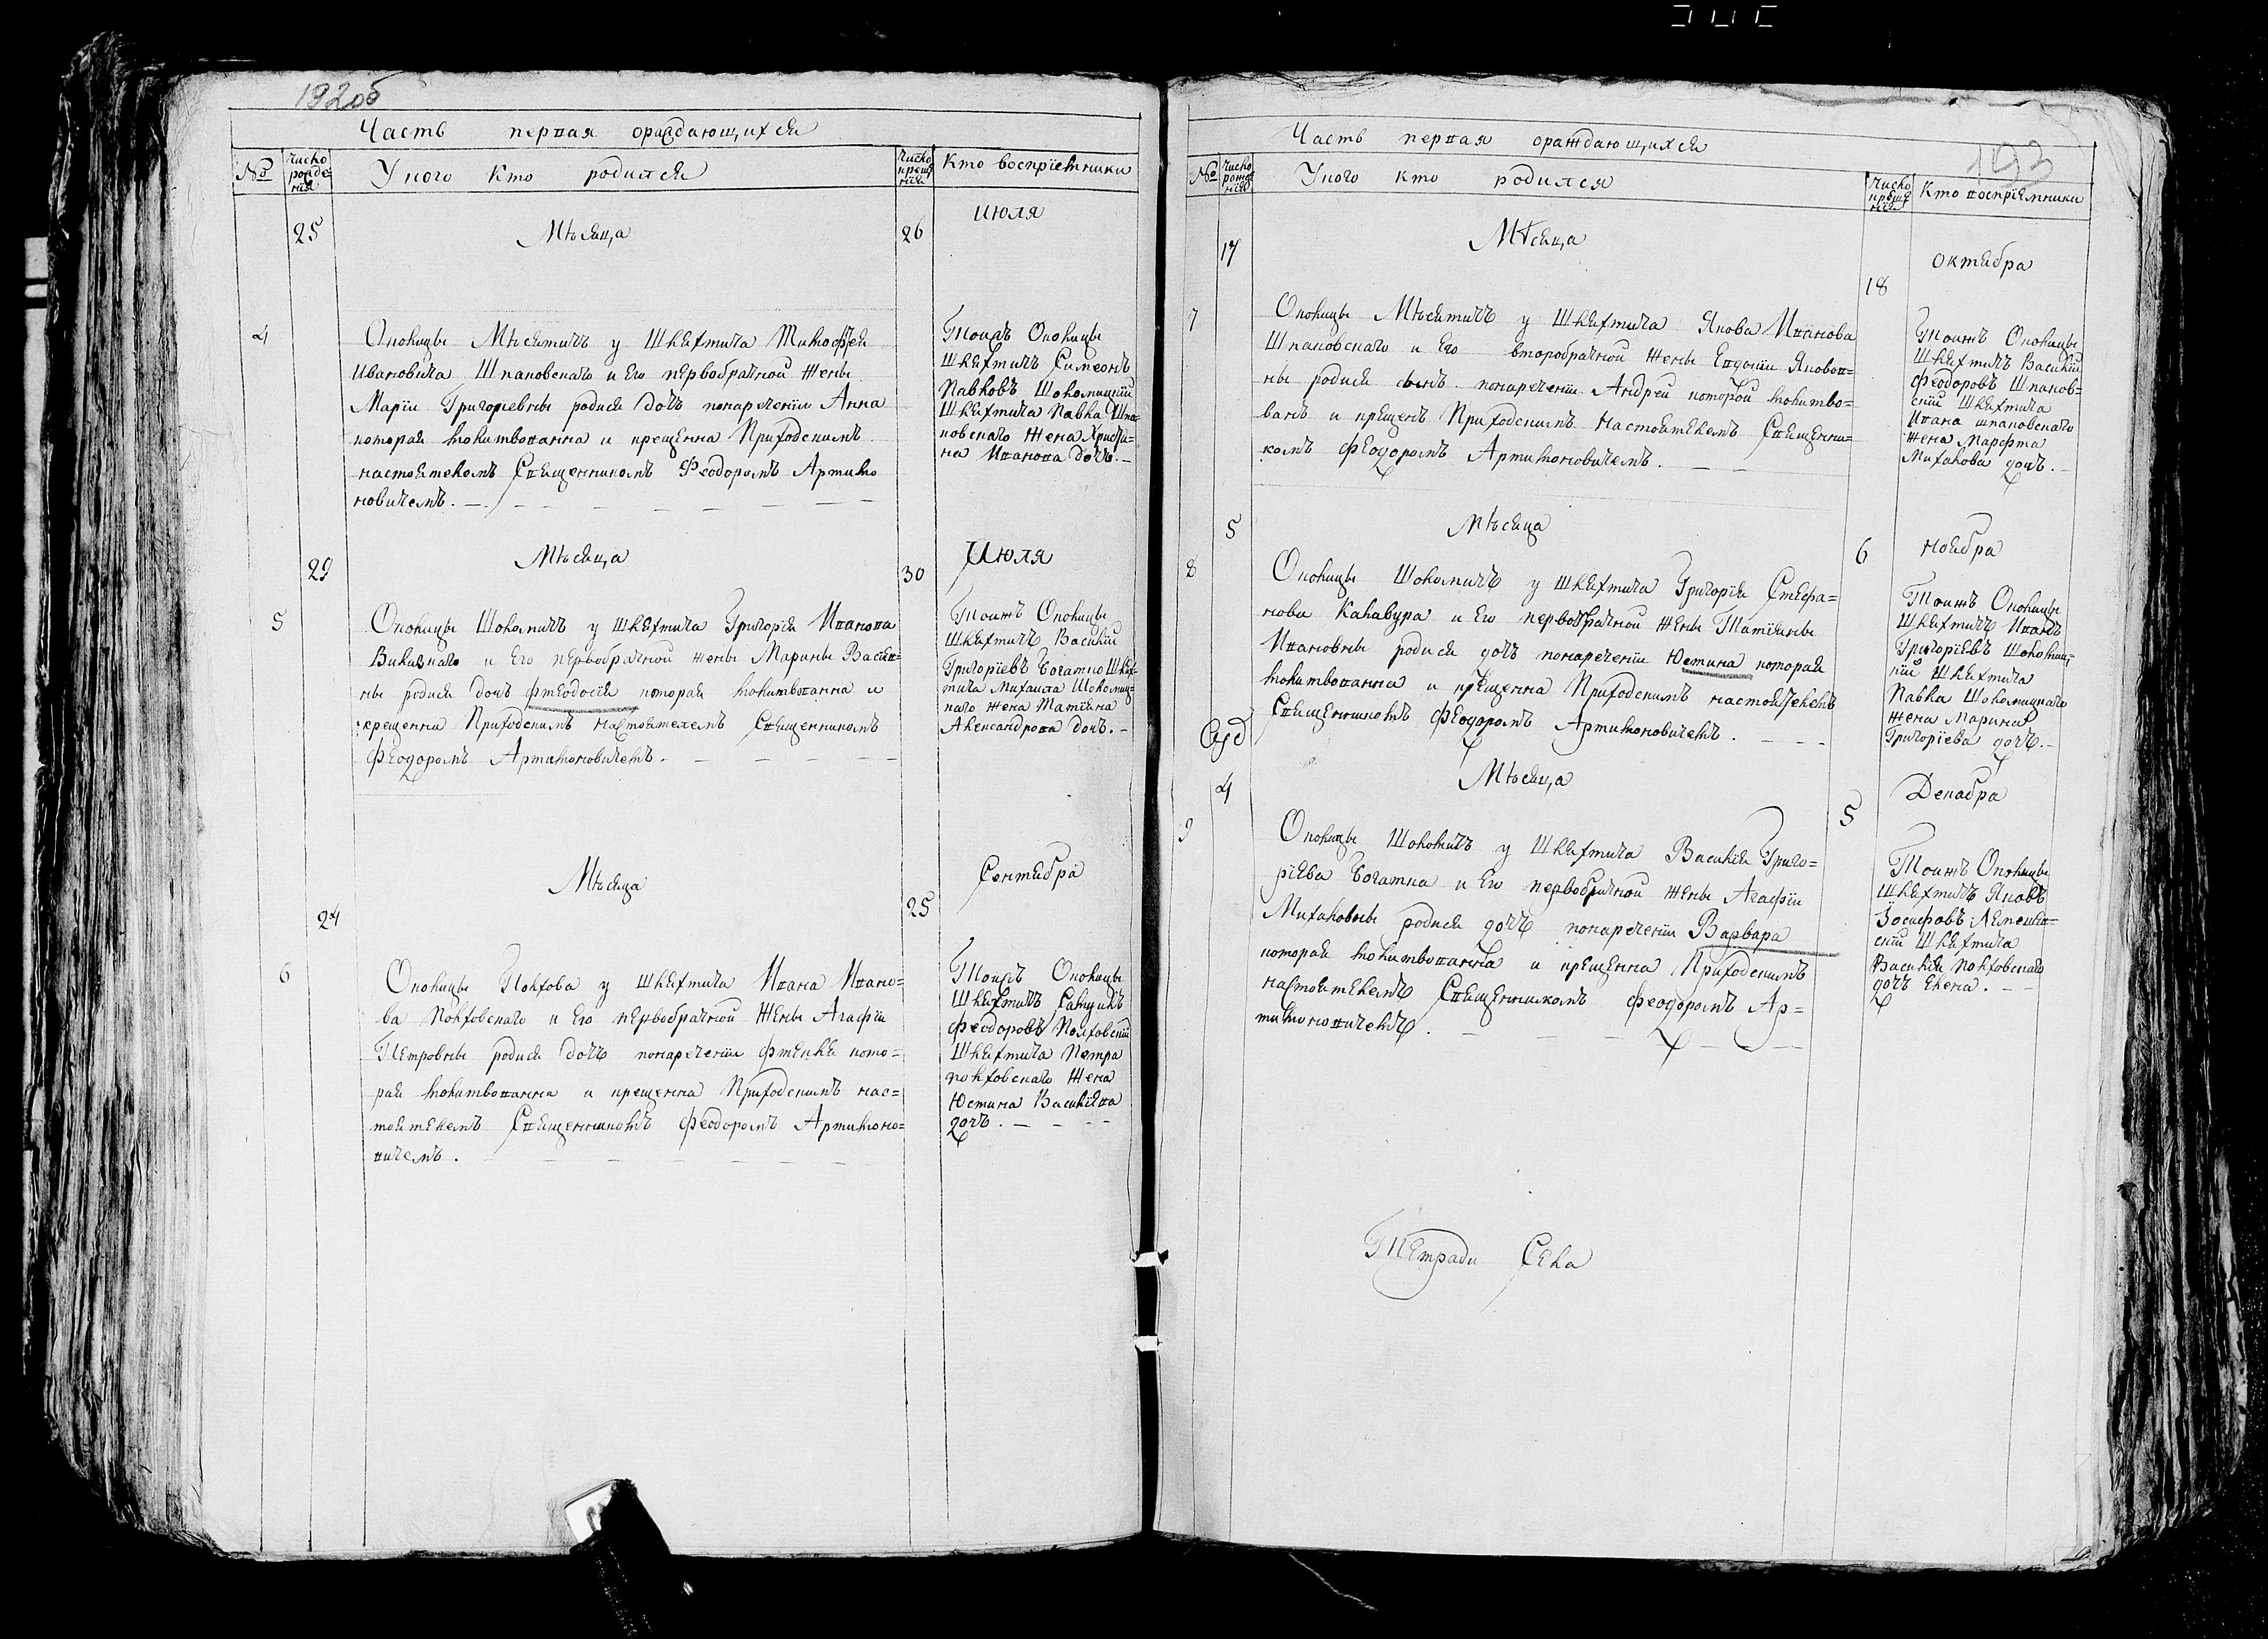 192об
Часть первая ораждающихся
№
Число рожде-нія
У кого кто родился
Число крещенія
Кто воспріемники
25
Мѣсяца
26
Июля
4
Околицы Мѣсятичъ у Шляхтича Тимофѣя
Ивановича Шпановскаго и Его первобрачной жены
Маріи Григоріевны родися дочъ понаречении Анна
которая молитвованна и крещенна Приходскимъ
настоятелемъ Священникомъ Феодоромъ Артимо
новичемъ.
Тоижъ Околицы
Шляхтичъ Симеонъ
Павловъ Шоломицкій
Шляхтича Павла Шпа-
новскаго жена Христи-
на Иванова дочъ.
29
Мѣсяца
30
Июля
5
Околицы Шоломичъ у Шляхтича Григорія Иванова
и Его первобрачной жены Марины Васил-
ны родися дочъ Фтеодосія которая молитвованна и
крещенна Приходскимъ настоятелемъ Священникомъ
Феодоромъ Артимоновичемъ.
Тоижъ Околицы
Шляхтичъ Василій
Григоріевъ Богатко Шлях-
тича Михаила Шоломиц-
каго жена Татіана
Александрова дочъ.
24
Мѣсяца
25
Сентября
6
Околицы Полхова у Шляхтича Ивана Ивано-
ва Полховскаго и Его первобрачной Жены Агафіи
Петровны родися дочъ понаречении Фтекля кото-
рая молитвованна и крещенна Приходскимъ нас-
тоятелемъ Священникомъ Феодоромъ Артимоно-
вичемъ.
Тоижъ Околицы
Шляхтичъ
Феодоровъ Полховскій
Шляхтича Петра
Полховскаго Жена
Юстина Василіева
дочъ.
193
Часть первая ораждающихся
№
Число рожденія
У кого кто родился
Число крещенія
Кто воспріемники
17
Мѣсяца
18
Октября
7
Околицы Мѣсятичъ у Шляхтича Якова Иванова
Шпановскаго и Его второбрачной жены Евдокіи Яковов-
ны родися сынъ понаречении Андрей которой молитво-
ванъ и крещенъ Приходскимъ Настоятелемъ Священни-
комъ Феодоромъ Артимоновичемъ.
Тоижъ Околицы
Шляхтичъ Василій
Феодоровъ Шпанов-
скій Шляхтича
Ивана шпановскаго
жена Марфта
Михалова дочъ.
5
Мѣсяца
6
Ноября
8
Околицы Шоломичъ у Шляхтича Григорія Стефа-
нова Калавура и Его первобрачной жены Татіяны
Ивановны родися дочъ понаречении Юстина которая
молитвованна и крещенна Приходскимъ настоятелемъ
Священникомъ Феодоромъ Артимоновичемъ.
Тоижъ Околицы
Шляхтичъ Иванъ
Григоріевъ Шоломиц-
кій Шляхтича
Павла Шоломицкаго
жена Марина
Григоріева дочъ.
4
Мѣсяца
5
Декабря
9
Околицы Шоломичъ у Шляхтича Василія Григо-
ріева Богатка и Его первобрачной жены Агафіи
Михаловны родися дочъ понаречении Варвара
которая молитвованна и крещенна Приходскимъ
настоятелемъ Священникомъ Феодоромъ Ар-
тимоновичемъ.
Тоижъ Околицы
Шляхтичъ Яковъ
скій Шляхтича
Василія Полховскаго
дочъ Елена.
Тетради Села